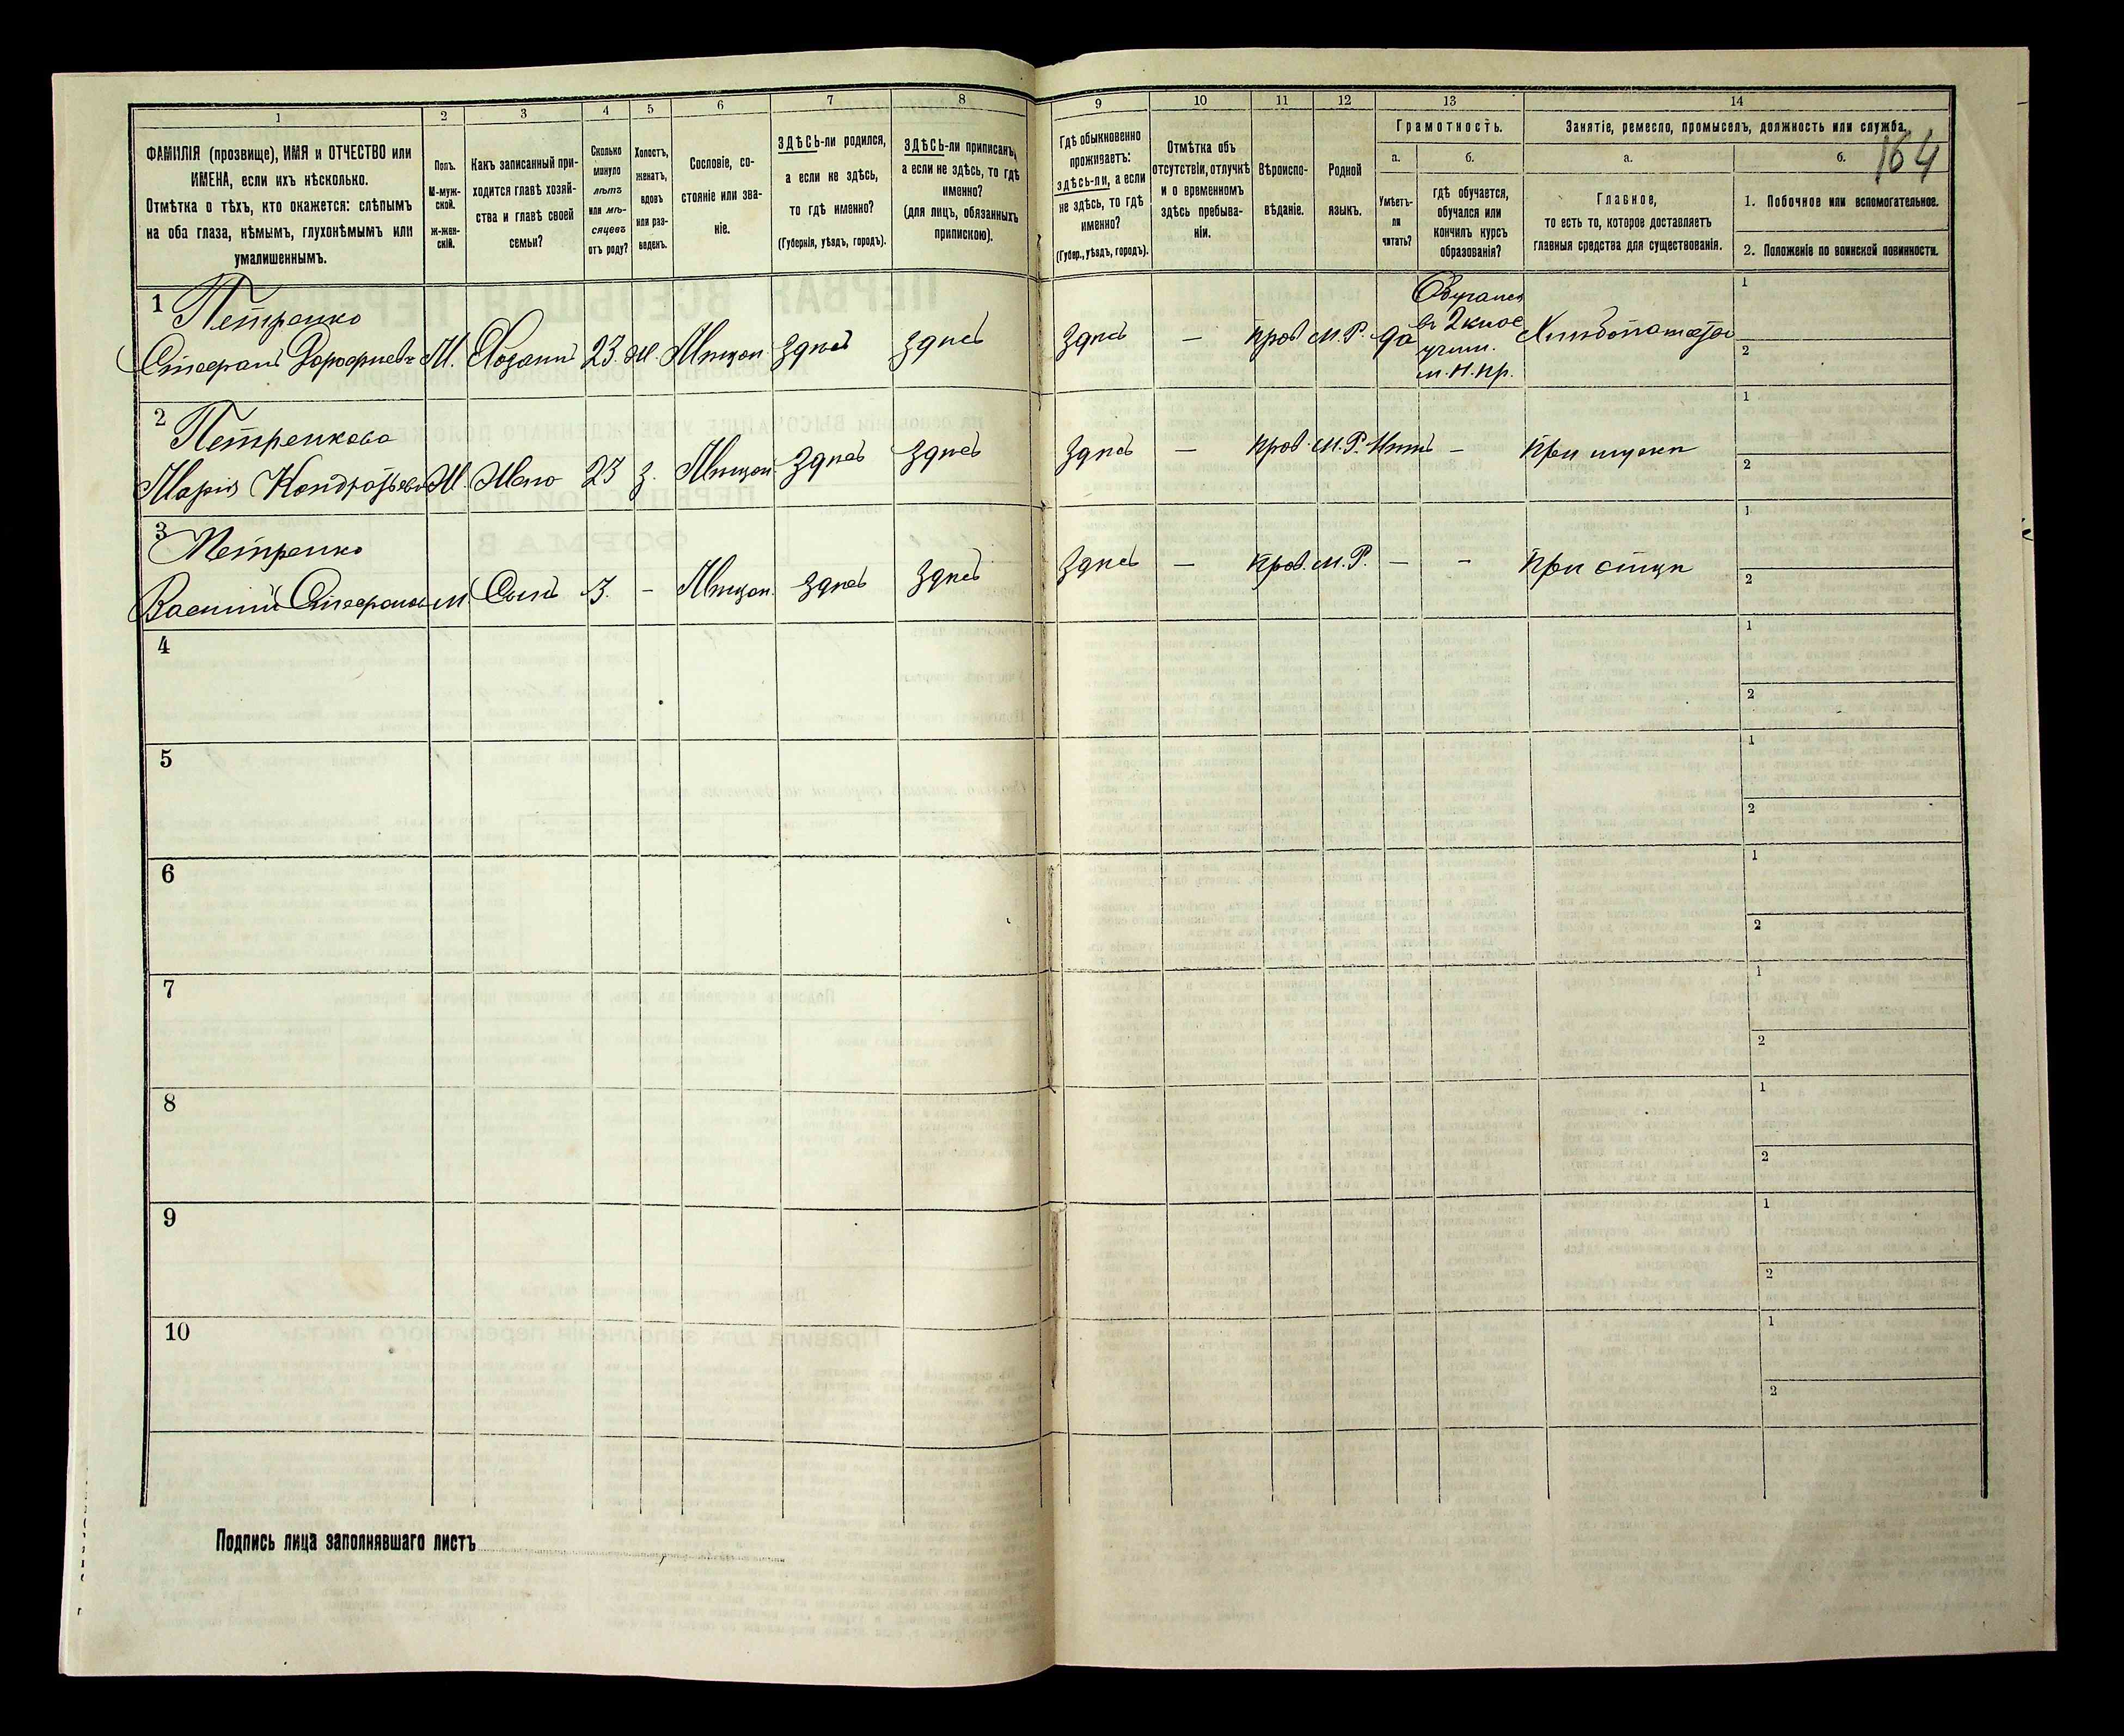 1 2 3 4 5 6 7 8 9 10 11 12 13 14
164
ФАМИЛІЯ (прозвище), ИМЯ и ОТЧЕСТВО или
ИМЕНА, если ихъ нѣсколько.
Отмѣтка о тѣхъ, кто окажется: слѣпымъ
на оба глаза, нѣмымъ, глухонѣмымъ или
умалишеннымъ.
Полъ.
М-муж-
ской.
ж-жен-
скій.
Какъ записанный при-
ходится главѣ хозяй-
ства и главѣ своей
семьи?
Сколько
минуло
лѣтъ
или мѣ-
сяцевъ
отъ роду?
Холостъ,
женатъ,
вдовъ
или раз-
веденъ.
Сословіе, со-
стояніе или зва-
ніе.
ЗДѢСЬ-ли родился,
а если не здѣсь,
то гдѣ именно?
(Губернія, уѣздъ, городъ).
ЗДѢСЬ-ли приписанъ,
а если не здѣсь, то гдѣ
именно?
(для лицъ, обязанныхъ
припискою).
Гдѣ обыкновенно
проживаетъ:
здѣсь-ли, а если
не здѣсь, то гдѣ
именно?
(Губер., уѣздъ, городъ).
Отмѣтка объ
отсутствіи, отлучкѣ
и о временномъ
здѣсь пребыва-
ніи.
Вѣроиспо-
вѣданіе.
Родной
языкъ.
Грамотность.
а.
Умѣетъ-
ли
читать?
б.
гдѣ обучается,
обучался или
кончилъ курсъ
образованія?
Занятіе, ремесло, промыселъ, должность или служба.
а.
Главное,
то есть то, которое доставляетъ
главныя средства для существованія.
б.
1. Побочное или вспомогательное.
2. Положеніе по воинской повинности.
1 Петренко
Стефанъ Дорофѣевъ М. Хозяинъ 23. Ж. Мѣщан. Здѣсь Здѣсь Здѣсь — Прав. М.Р. Да
Обучался
въ 2 клас
учил.
м. н. пр.
Хлѣбопашество
1
2
2 Петренкова
Марія Кондратьева М. Жена 23 З. Мѣщан. Здѣсь Здѣсь Здѣсь — Прав. М.Р. Нѣтъ — При мужѣ
1
2
3 Петренко
Василій Стефановъ М. Сынъ 3. — Мѣщан. Здѣсь Здѣсь Здѣсь — Прав. М.Р. — — При отцѣ
1
2
4
1
2
5
1
2
6
1
2
7
1
2
8
1
2
9
1
2
10
1
2
Подпись лица заполнявшаго листъ